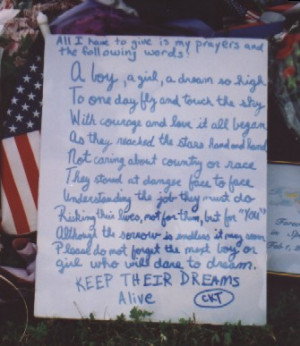 All I have to give is my prayers and
the following words!
A boy, a girl, a dream so high
To one day fly and touch the sky
With courage and love it all began
As they reached the stars hand and hand
Not caring about country or race
They stood at danger face to face
Understanding the job they must do
Risking their lives, not for they, but for "YOU"
Although the sorrow is endless it may seem
Please do not forget the next boy or
girl who will dare to dream.
KEEP THEIR DREAMS
Alive
CKT
Feb 1,